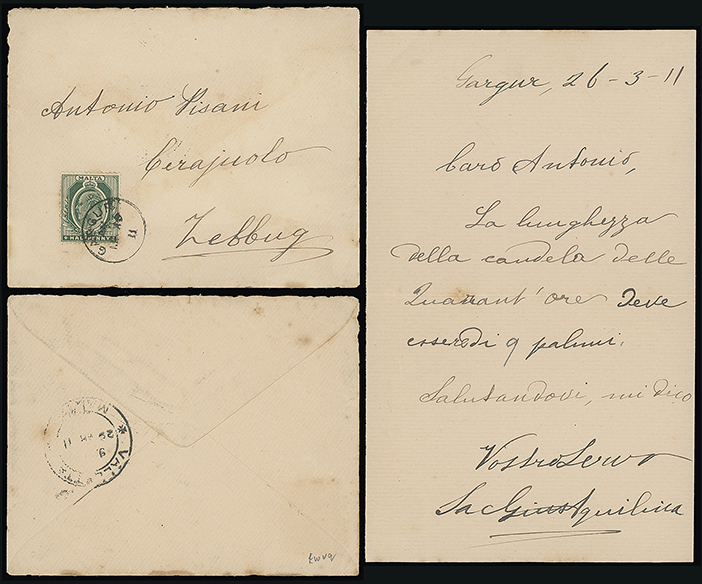 Antonio Pisani
Cerajuolo
Zebbug
MALTA
HALFPENNY
GARGUR
11
VALLETTA
MALTA
11
Gargur, 26-3-11
Caro Antonio,
La lunghezza
della candela delle
Quarant'ore deve
essere di 9 palmi.
Salutandovi, mi dico
Vostro Servo
Sac Gius Aquilina